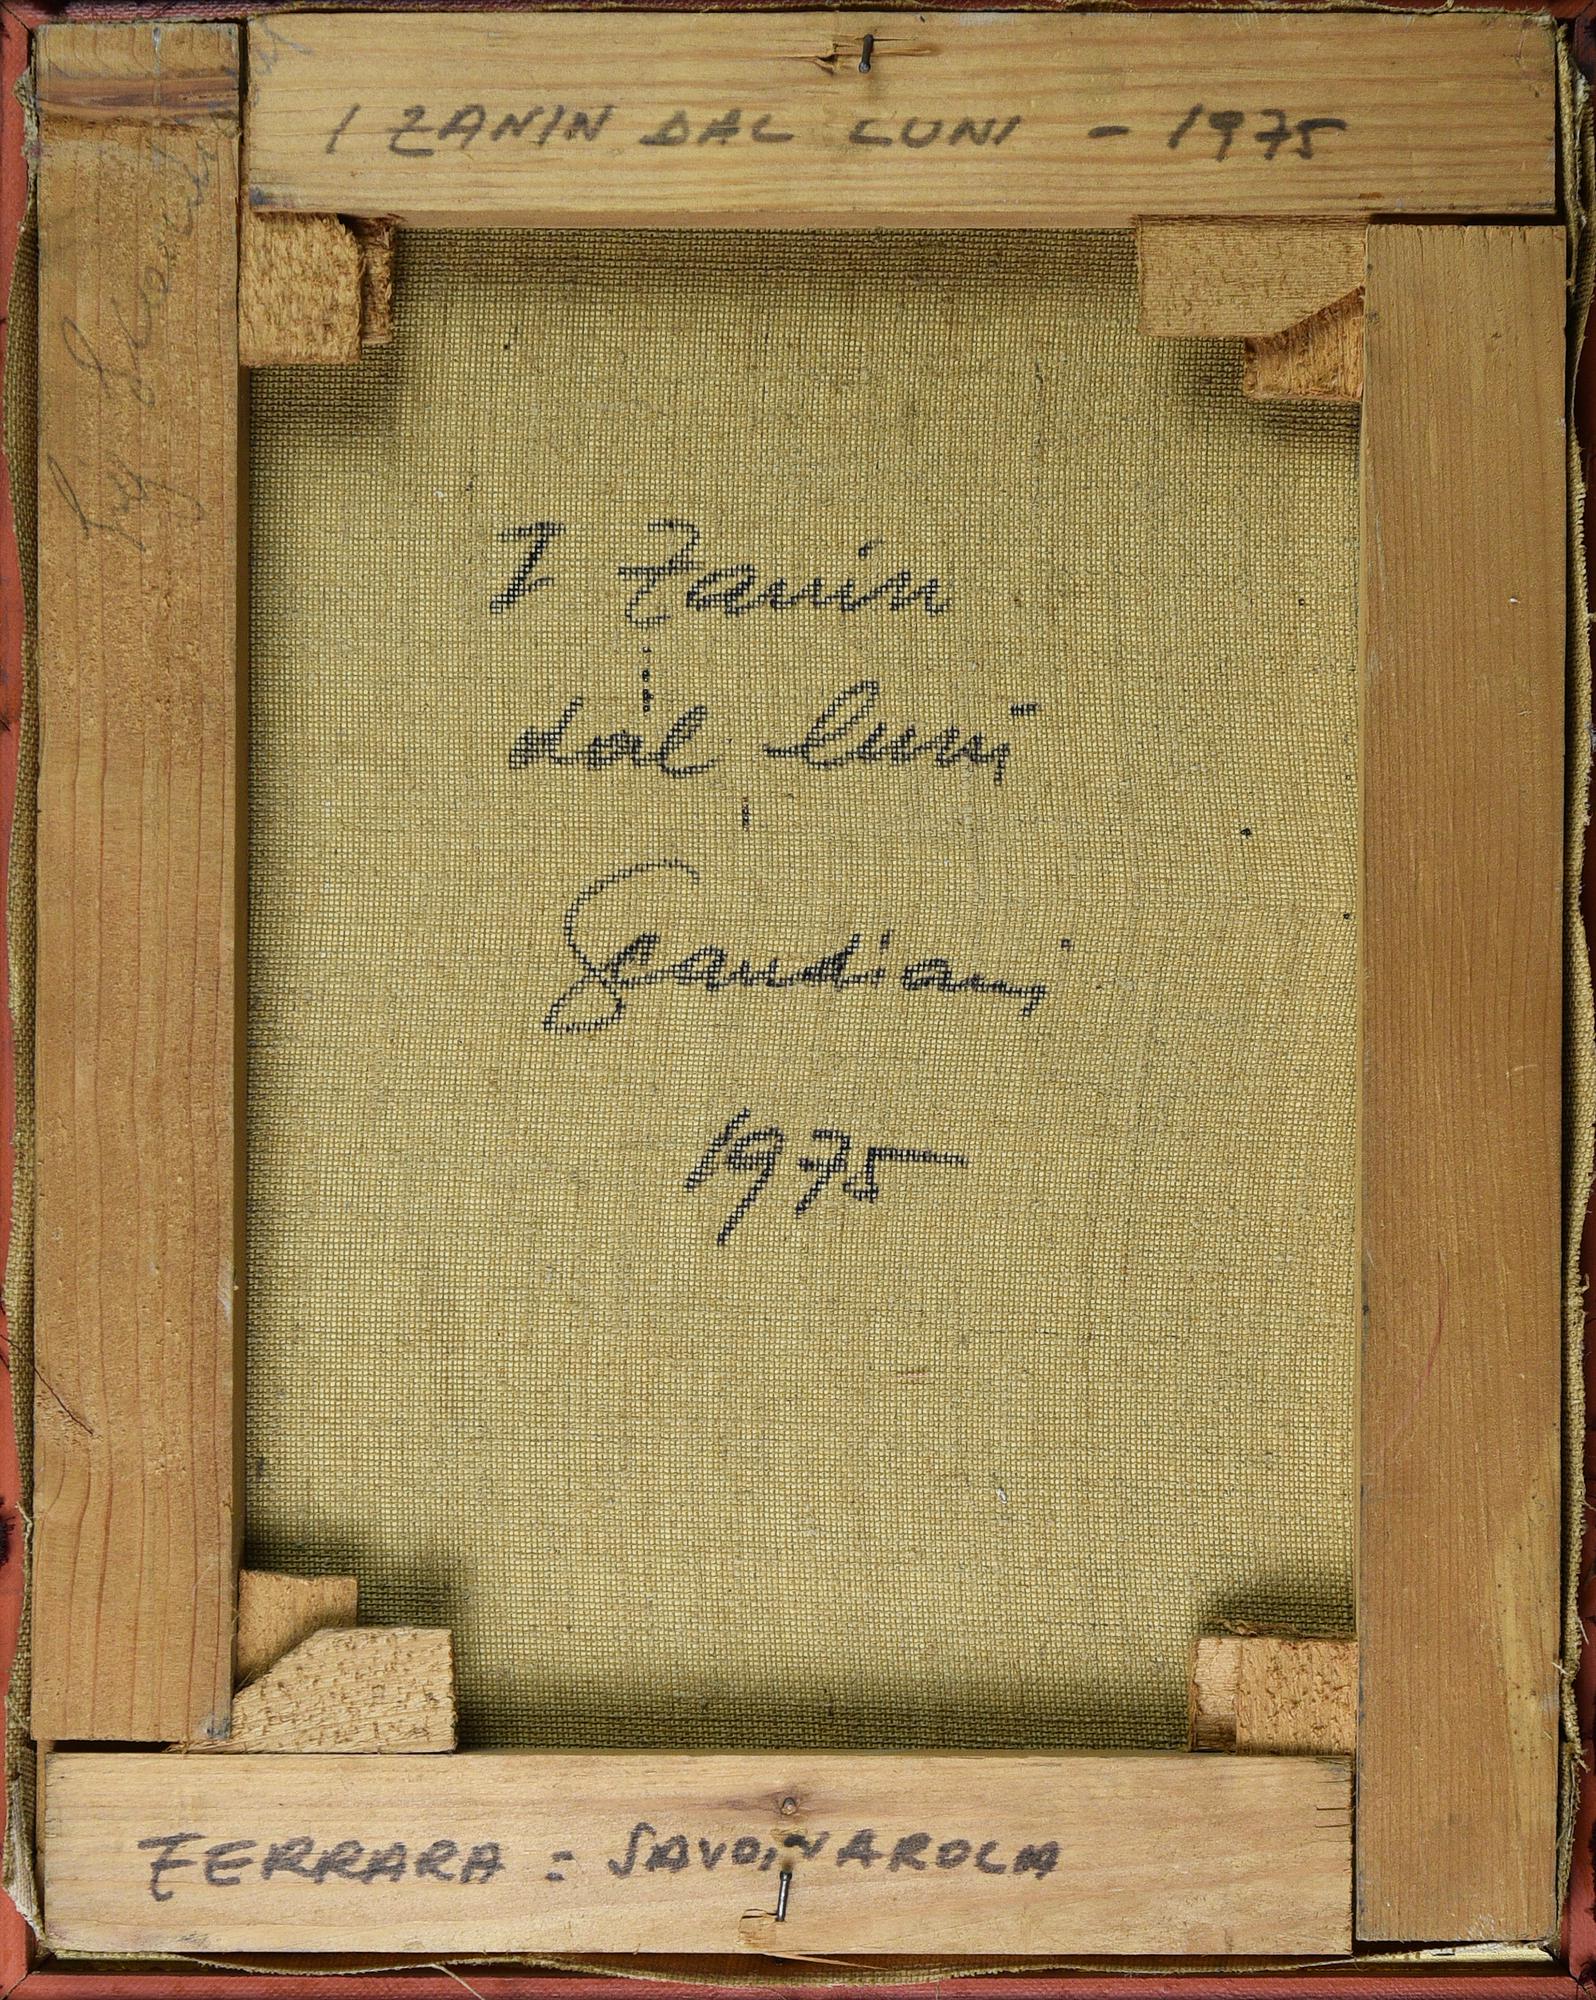 I ZANIN DAL LUNI - 1975
I Zanin
dal Luni
Scandiani
1975
FERRARA = SAVONAROLA